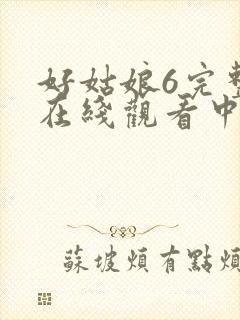 好姑娘6完整
在綫觀看中
蘇坡煩有點煩